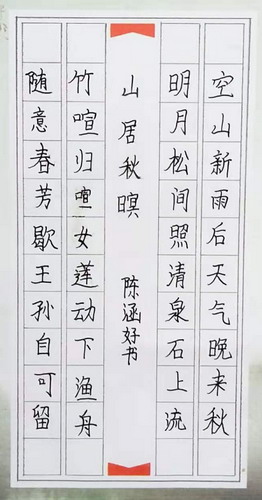 空山新雨后天气晚来秋
明月松间照清泉石上流
山居秋暝 陈涵好书
竹喧归喧女莲动下渔舟
随意春芳歇王孙自可留